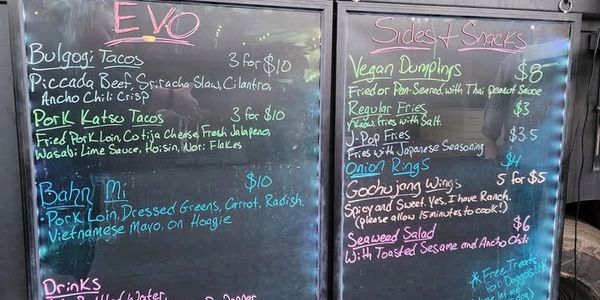 EVO
Bulgogi Tacos 3 for $10
Piccada Beef, Sriracha Slaw, Cilantro,
Ancho Chili Crisp
Pork Katsu Tacos 3 for $10
Fried Pork Loin, Cotija Cheese, Fresh Jalapeno,
Wasabi Lime Sauce, Hoisin, Nori Flakes
Bahn Mi $10
Pork Loin, Dressed Greens, Carrot, Radish,
Vietnamese Mayo, on Hoagie
Drinks
Bottled Water
Sides & Snacks
Vegan Dumplings $8
Fried or Pan-Seared, with Thai Peanut Sauce
Regular Fries $3
Y'know, Fries with Salt.
J-Pop Fries $3.5
Fries with Japanese Seasoning
Onion Rings $4
Gochujang Wings 5 for $5
Spicy and Sweet. Yes, I have Ranch.
(please allow 15 minutes to cook!)
Seaweed Salad $6
With Toasted Sesame and Ancho Chili
*Free Treats
for Doggos!
let me